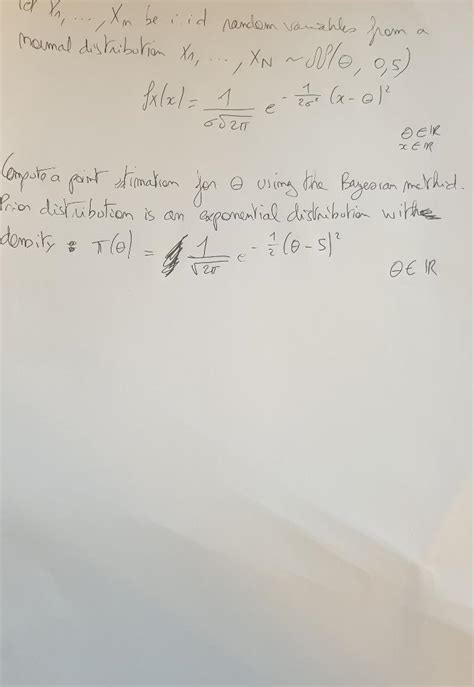 let X1, ..., Xn be i.i.d random variables from a
normal distribution X1, ..., XN ~ N(θ, 0,5)
fx(x) = 1/(σ√2π) e^(-1/(2σ²) (x - θ)²)
θ ∈ ℝ
x ∈ ℝ
Compute a point stimation for θ using the Bayesian method.
Prior distribution is an exponential distribution with
density : π(θ) = 1/√2π e^(-1/2 (θ - 5)²)
θ ∈ ℝ